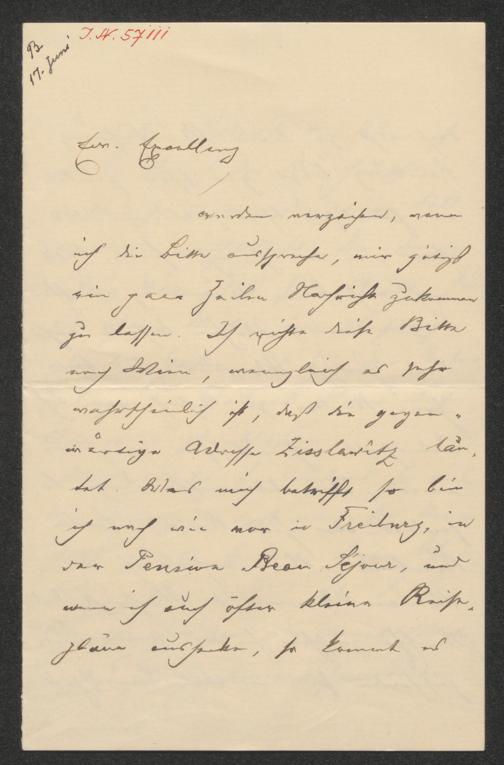 I. N. 57111
93
17. Juni
Euer Excellenz
werden verzeihen, wenn
ich die Bitte ausspreche, mir gütigst
ein paar Zeilen Nachricht zukommen
zu lassen. Ich richte diese Bitte
nach Wien, wenngleich es sehr
wahrscheinlich ist, daß die gegen-
wärtige Adresse Zisslawitz lau-
tet. Was mich betrifft so bin
ich nach wie vor in Freiburg, in
der Pension Beau Séjour, und
wenn ich auch öfter kleine Reise-
pläne aushecke, so kommt es